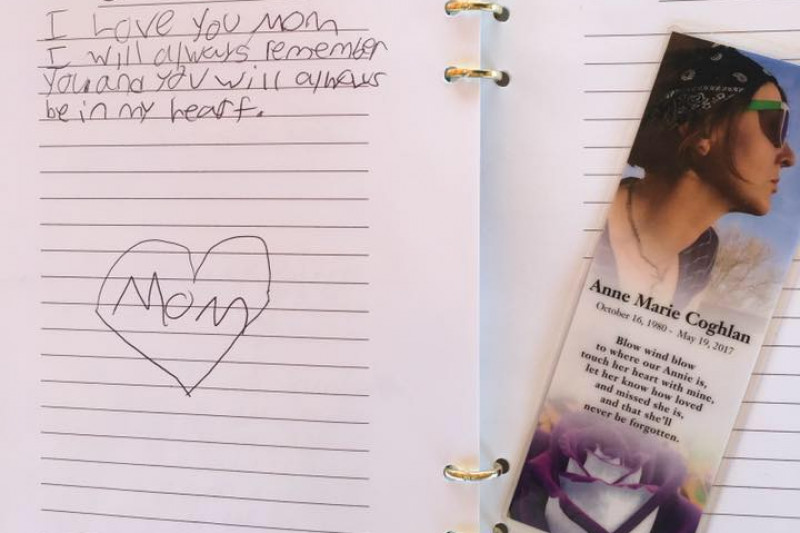 I Love You Mom
I will always remember
you and you will always
be in my heart.
Mom
Anne Marie Coghlan
October 16, 1980 - May 19, 2017
Blow wind blow
to where our Annie is,
touch her heart with mine,
let her know how loved
and missed she is,
and that she'll
never be forgotten.